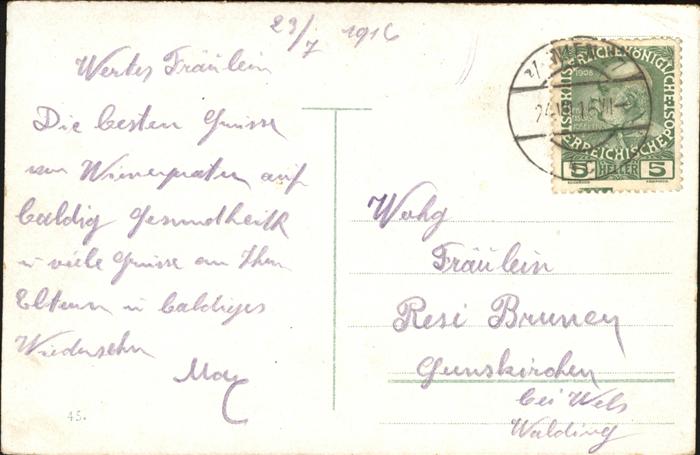 23/7 1916
Wertes Fräulein
Die besten Grüsse
von Wienerpraten auf
baldig Gesundheith
u viele Grüsse an Ihren
Eltern u baldiges
Wiedersehn
Max
45.
WIEN
1908
KAISERLICHE KÖNIGLICHE
ÖSTERREICHISCHE POST
5 HELLER 5
Wohg
Fräulein
Resi Bruney
Gunskirchen
bei Wels
Walding